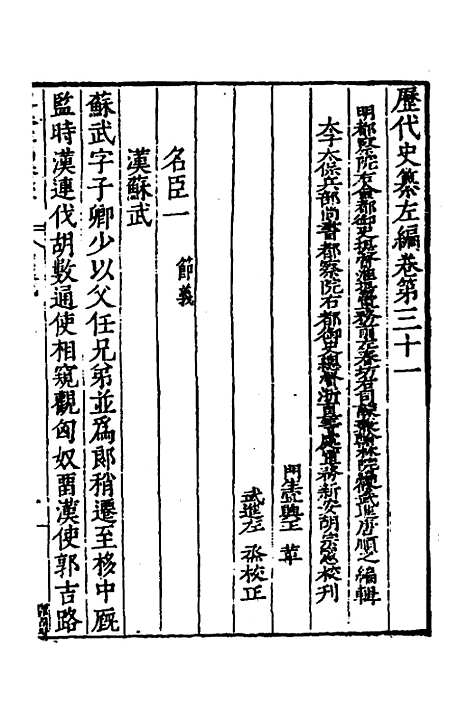 歷代史纂左編卷第三十一
明都察院右僉都御史提督淮揚軍務前左春坊右司諫兼翰林院編修武進唐順之編輯
太子太保兵部尚書都察院右都御史總督浙直等處軍務新安胡宗憲校刊
門生 興王 革
武進左 烝校正
名臣一 節義
漢蘇武
蘇武字子卿少以父任兄弟並爲郎稍遷至栘中厩
監時漢連伐胡數通使相窺觀匈奴畱漢使郭吉路